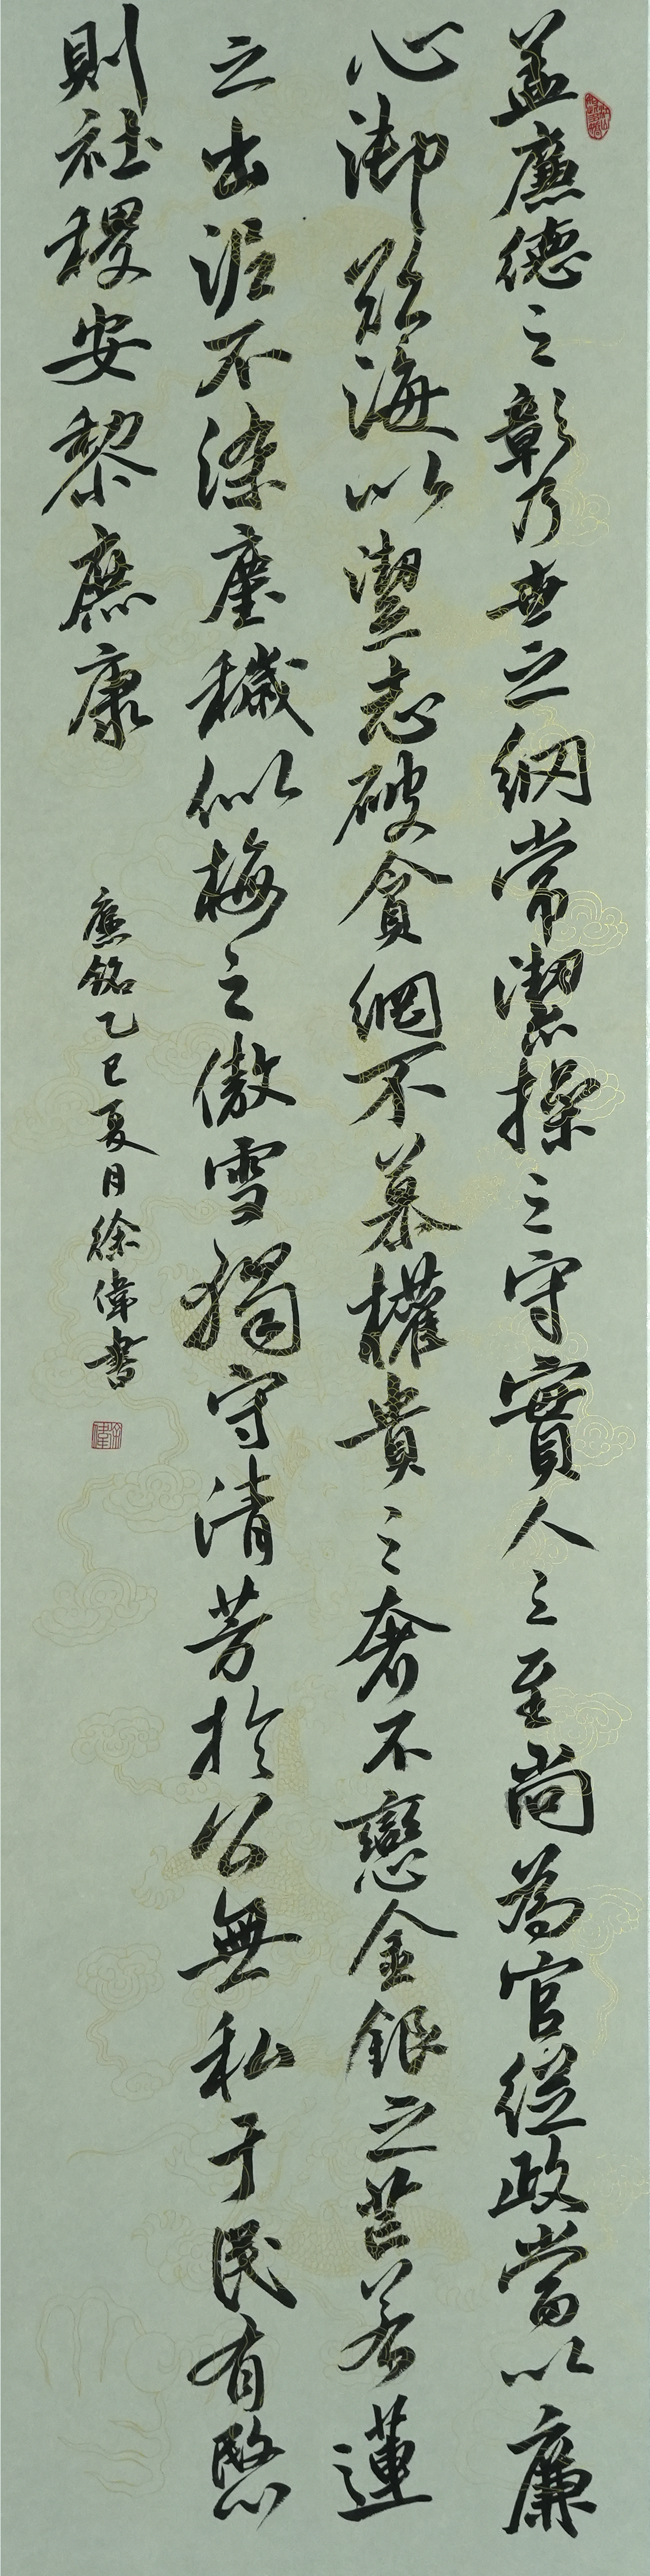 蓋廉德之彰乃世之綱常潔操之守實人之至尚為官從政當以廉
心御欲海以潔志破貪網不慕權貴之奢不戀金銀之芒若蓮
之出泥不染塵穢似梅之傲雪獨守清芳於公無私于民有愍
則社稷安黎庶康
廉銘乙巳夏月徐偉書
徐偉